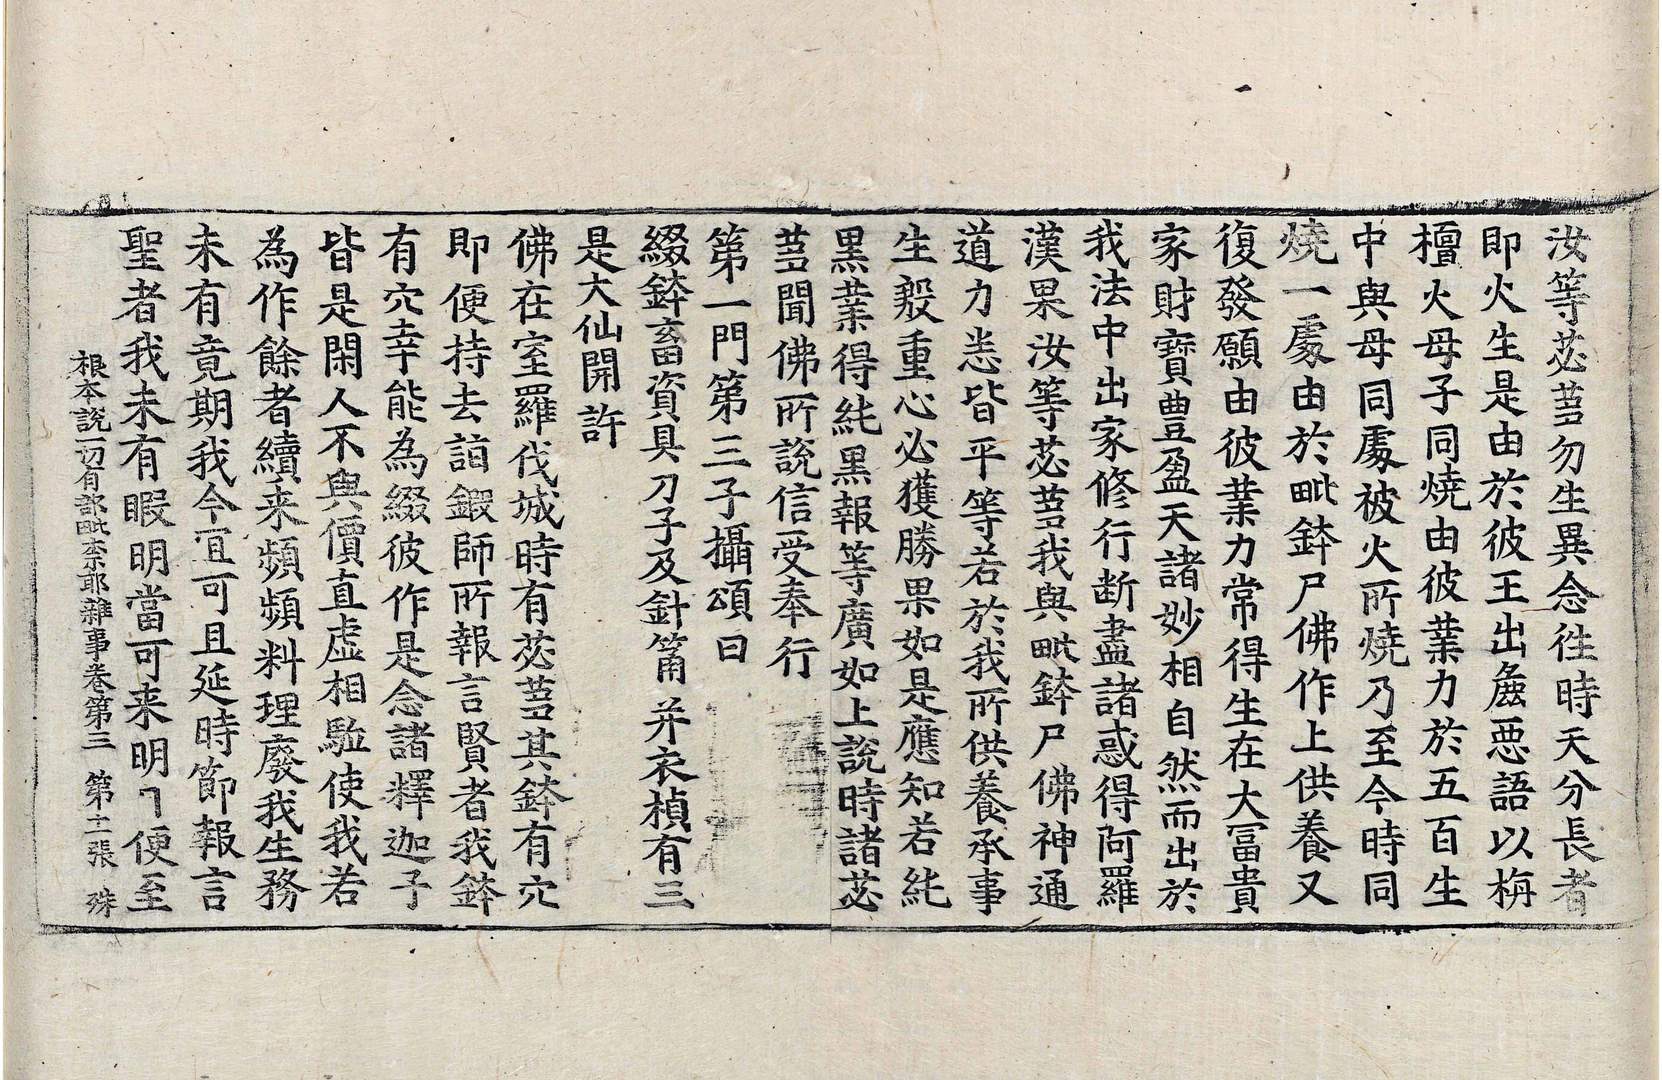 汝等苾芻勿生異念往時天分長者
即火生是由於彼王出麁惡語以栴
檀火母子同燒由彼業力於五百生
中與母同處被火所燒乃至今時同
燒一處由於毗鉢尸佛作上供養又
復發願由彼業力常得生在大冨貴
家財寶豊盈天諸妙相自然而出於
我法中出家修行断盡諸惑得阿羅
漢果汝等苾芻我與毗鉢尸佛神通
道力悉皆平等若於我所供養承事
生殷重心必獲勝果如是應知若純
黑業得純黑報等廣如上說時諸苾
芻聞佛所說信受奉行
第一門第三子攝頌曰
綴鉢畜資具刀子及針筩并衣楨有三
是大仙開許
佛在室羅伐城時有苾芻其鉢有穴
即便持去詣鍜師所報言賢者我鉢
有穴幸能為綴彼作是念諸釋迦子
皆是閑人不與價直虛相駈使我若
為作餘者續来頻頻料理廢我生務
未有竟期我今宜可且延時節報言
聖者我未有暇明當可来明㇕便至
根本說一切有部毗柰耶雜事卷第三 第十二張 殊